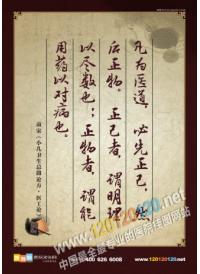 凡为医道，必先正己，然
后正物。正己者，谓明理
以尽数也；正物者，谓能
用药以对病也。
南宋《小儿卫生总微论方·医工论》
120120120.net
中国最全最专业的医院挂图网站
400 626 6008
www.120120120.net